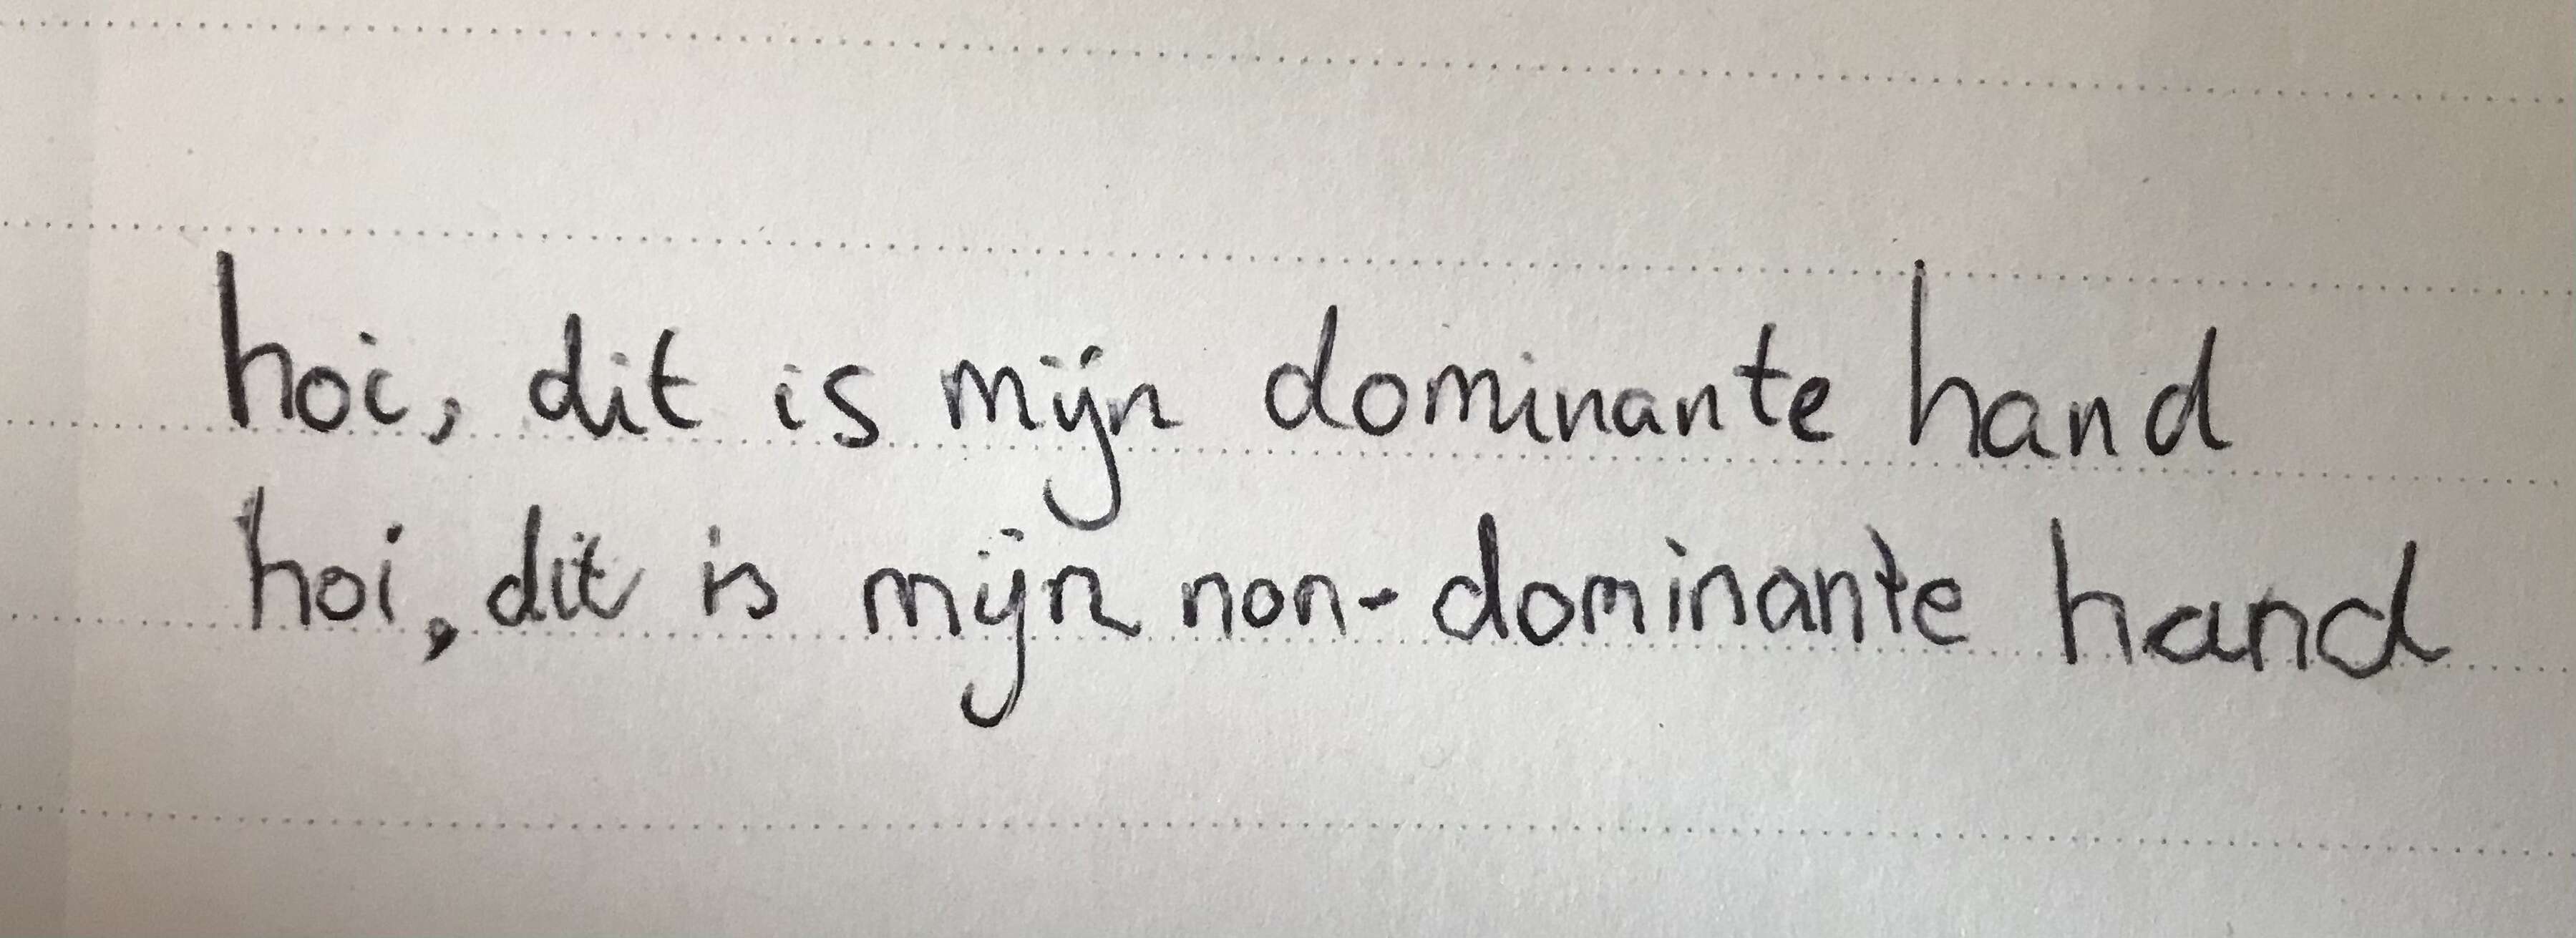 hoi, dit is mijn dominante hand
hoi, dit is mijn non-dominante hand